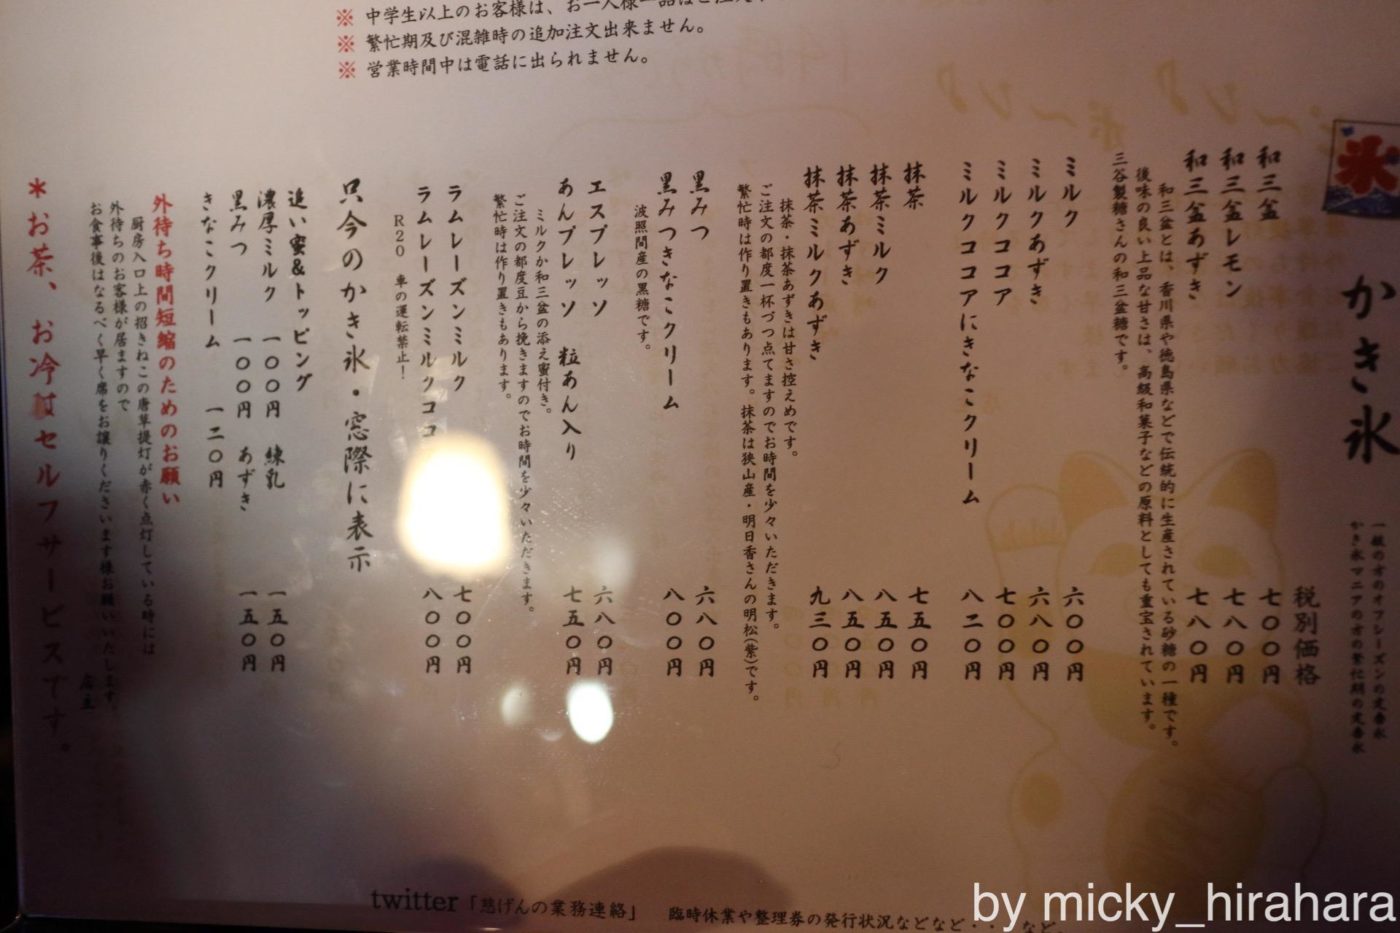 ※ 中学生以上のお客様は、お一人様一品
※ 繁忙期及び混雑時の追加注文出来ません。
※ 営業時間中は電話に出られません。
氷
かき氷
一般の方のオフシーズンの定番氷
かき氷マニアの方の繁忙期の定番氷
税別価格
和三盆 七〇〇円
和三盆レモン 七八〇円
和三盆あずき 七八〇円
和三盆とは、香川県や徳島県などで伝統的に生産されている砂糖の一種です。
後味の良い上品な甘さは、高級和菓子などの原料としても重宝されています。
三谷製糖さんの和三盆糖です。
ミルク 六〇〇円
ミルクあずき 六八〇円
ミルクココア 七〇〇円
ミルクココアにきなこクリーム 八二〇円
抹茶 七五〇円
抹茶ミルク 八五〇円
抹茶あずき 八五〇円
抹茶ミルクあずき 九三〇円
抹茶・抹茶あずきは甘さ控えめです。
ご注文の都度一杯づつ点てますのでお時間を少々いただきます。
繁忙時は作り置きもあります。抹茶は狭山産・明日香さんの明松(紫)です。
黒みつ 六八〇円
黒みつきなこクリーム 八〇〇円
波照間産の黒糖です。
エスプレッソ 六八〇円
あんプレッソ 粒あん入り 七五〇円
ミルクか和三盆の添え蜜付き。
ご注文の都度豆から挽きますのでお時間を少々いただきます。
繁忙時は作り置きもあります。
ラムレーズンミルク 七〇〇円
ラムレーズンミルクココ 八〇〇円
R20 車の運転禁止!
只今のかき氷・窓際に表示
追い蜜&トッピング
濃厚ミルク 一〇〇円 練乳 一五〇円
黒みつ 一〇〇円 あずき 一五〇円
きなこクリーム 一二〇円
外待ち時間短縮のためのお願い
厨房入口上の招きねこの唐草提灯が赤く点灯している時には
外待ちのお客様が居ますので
お食事後はなるべく早く席をお譲りくださいます様お願いいたします。
店主
*お茶、お冷はセルフサービスです。
twitter「慈げんの業務連絡」 臨時休業や整理券の発行状況などなど・・・など。
by micky_hirahara